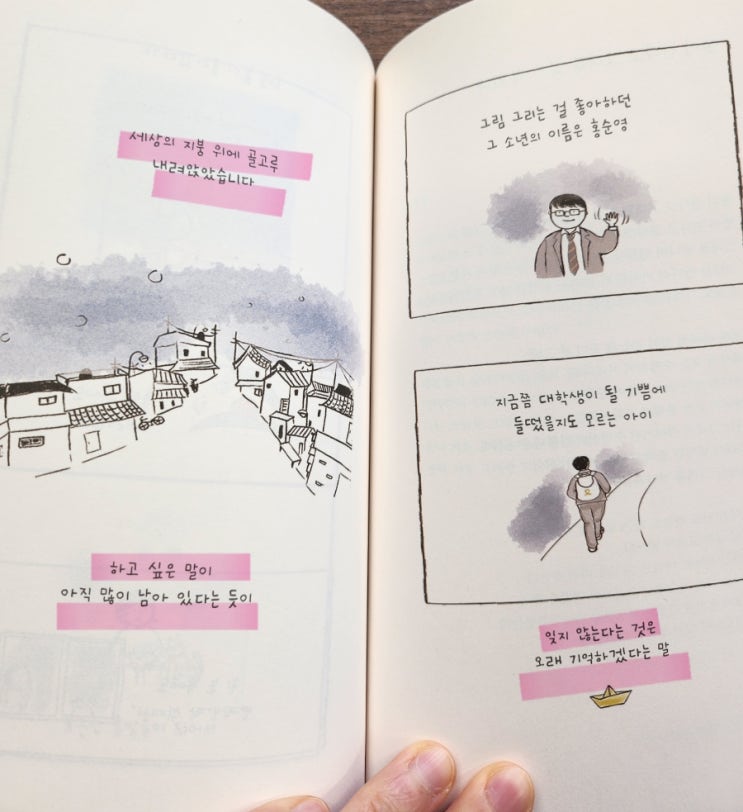 세상의 지붕 위에 골고루
내려앉았습니다
하고 싶은 말이
아직 많이 남아 있다는 듯이
그림 그리는 걸 좋아하던
그 소년의 이름은 홍순영
지금쯤 대학생이 될 기쁨에
들떴을지도 모르는 아이
잊지 않는다는 것은
오래 기억하겠다는 말